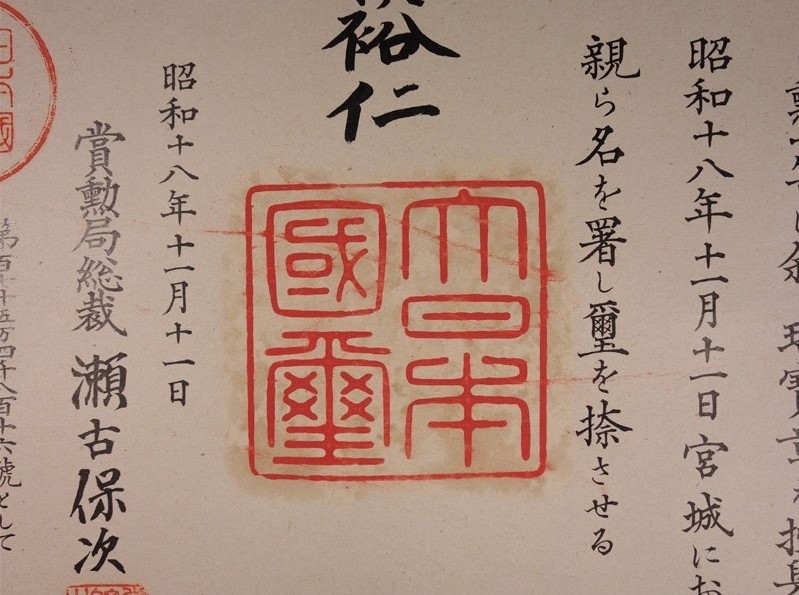 寶章を
昭和十八年十一月十一日宮城にお
親ら名を署し璽を捺させる
裕仁
大日本
國璽
昭和十八年十一月十一日
賞勲局総裁瀬古保次
五万四千八百十六號として
日本國